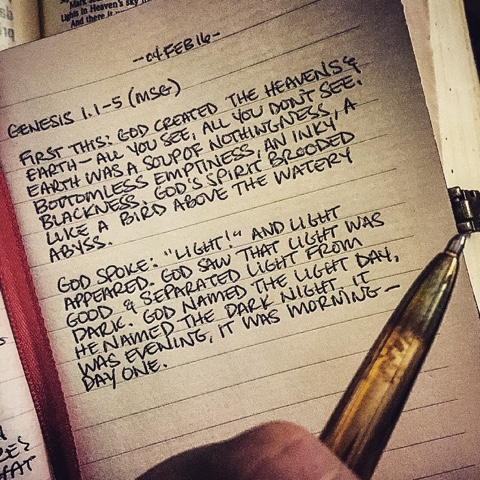 Lights in Heaven's sky
And there it
—04FEB16—
GENESIS 1.1-5 (MSG)
FIRST THIS: GOD CREATED THE HEAVENS &
EARTH—ALL YOU SEE, ALL YOU DON'T SEE.
EARTH WAS A SOUP OF NOTHINGNESS, A
BOTTOMLESS EMPTINESS, AN INKY
BLACKNESS. GOD'S SPIRIT BROODED
LIKE A BIRD ABOVE THE WATERY
ABYSS.
GOD SPOKE: "LIGHT!" AND LIGHT
APPEARED. GOD SAW THAT LIGHT WAS
GOOD & SEPARATED LIGHT FROM
DARK. GOD NAMED THE LIGHT DAY,
HE NAMED THE DARK NIGHT. IT
WAS EVENING, IT WAS MORNING—
DAY ONE.